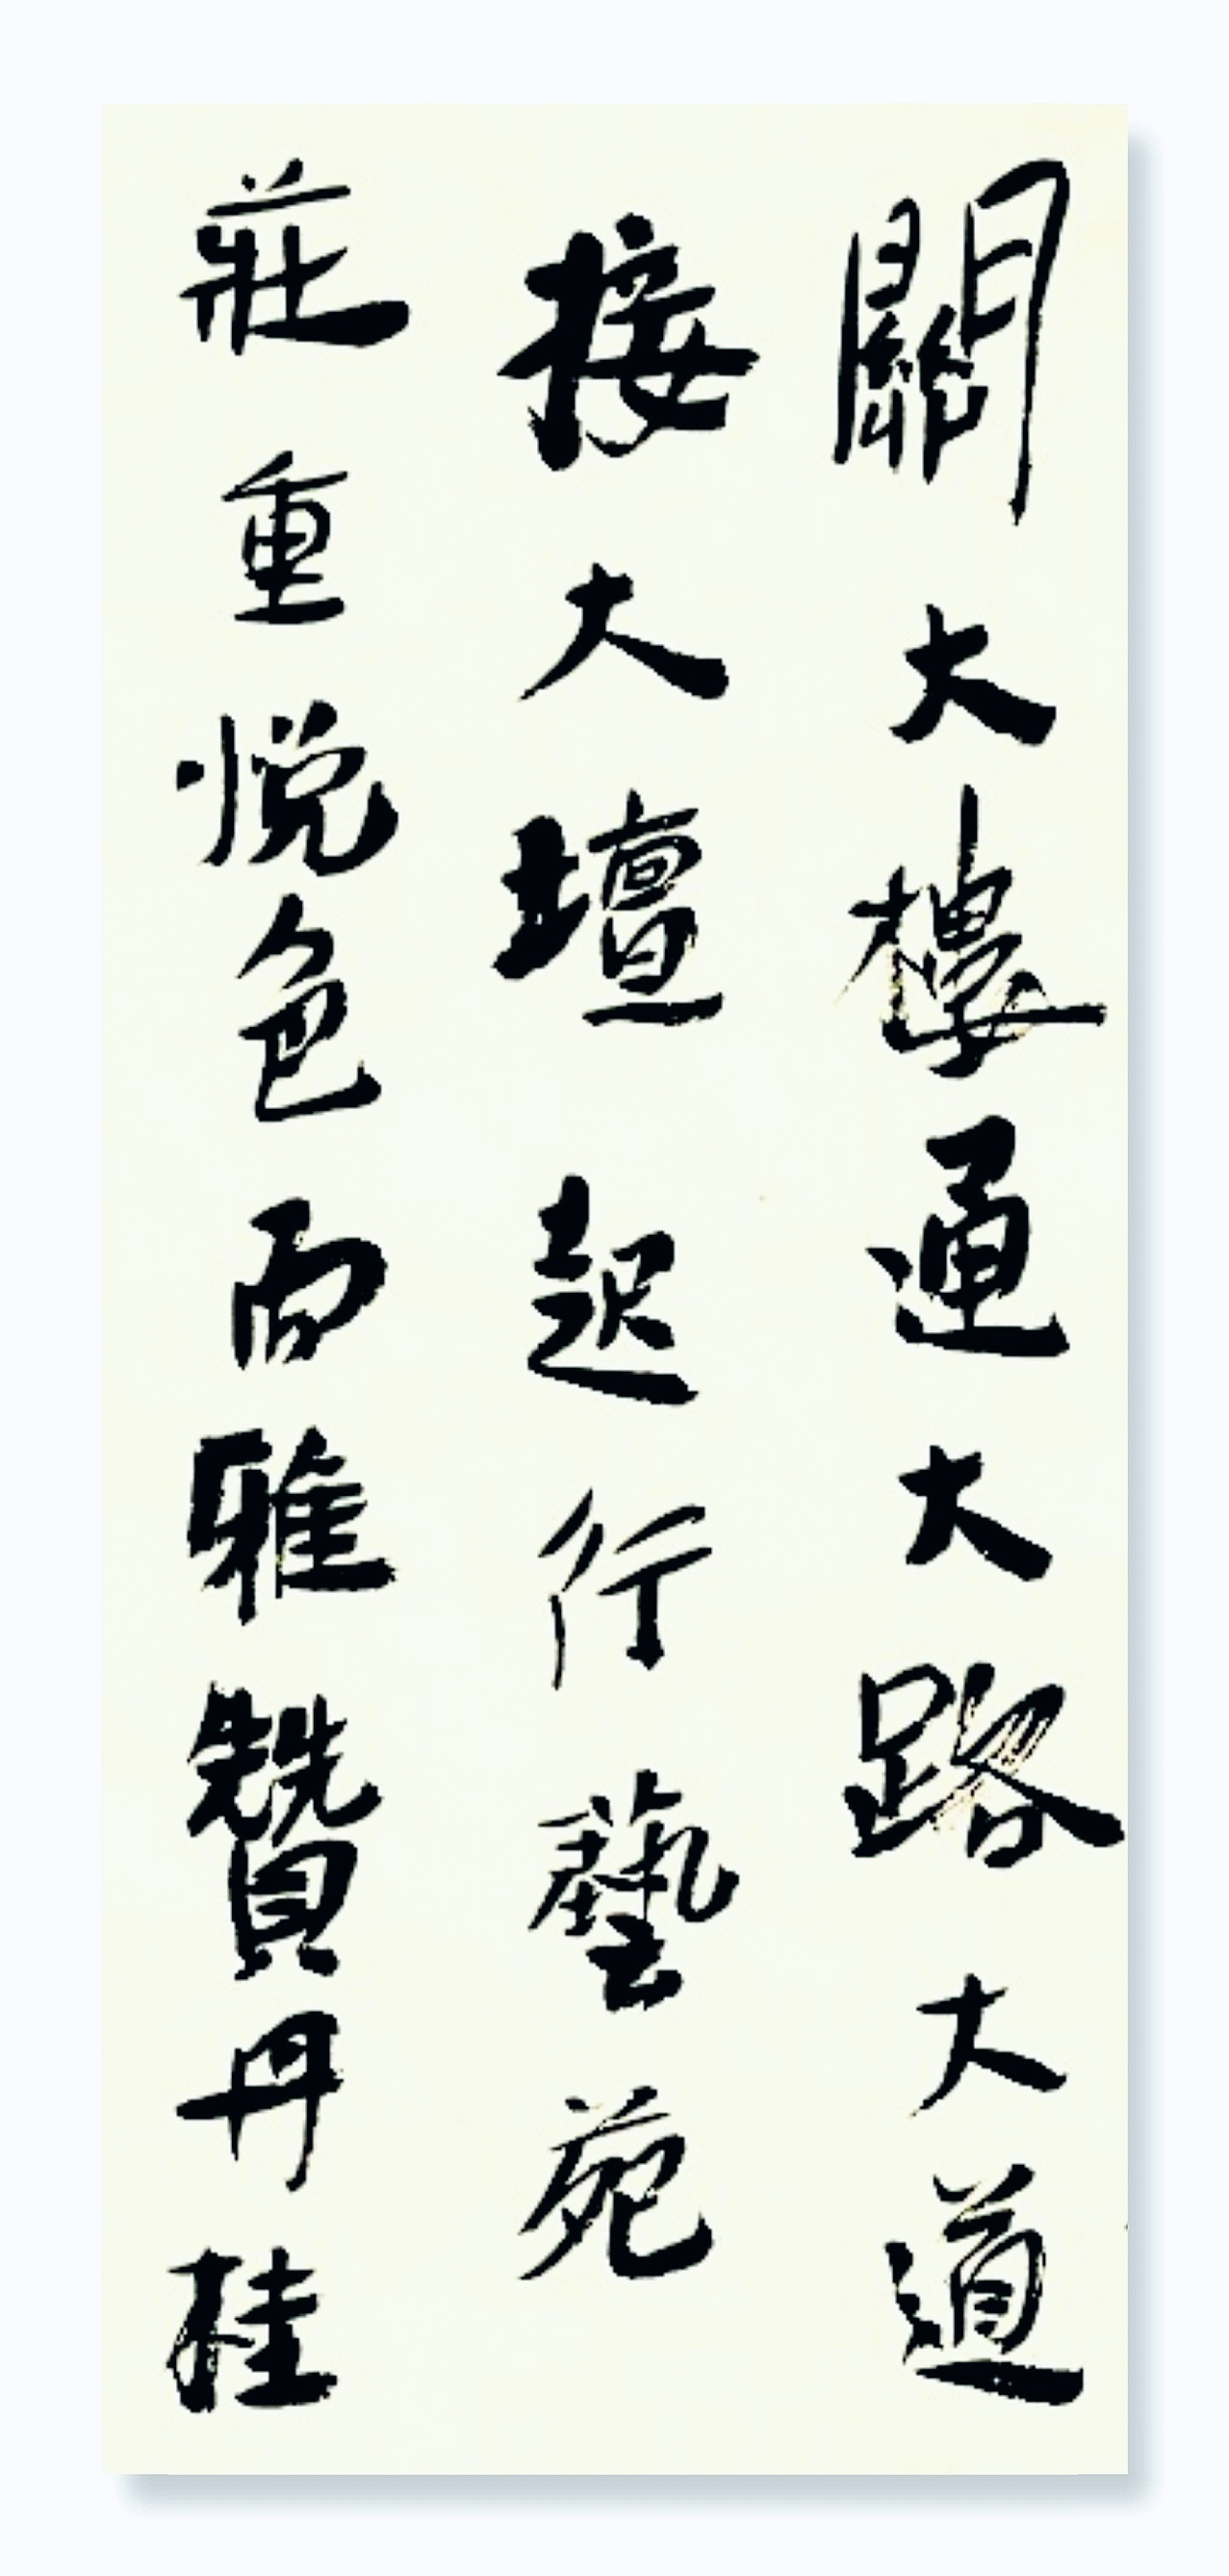 關大樓通大路大道
接大壇起行藝苑
莊重悦色而雅贊丹桂